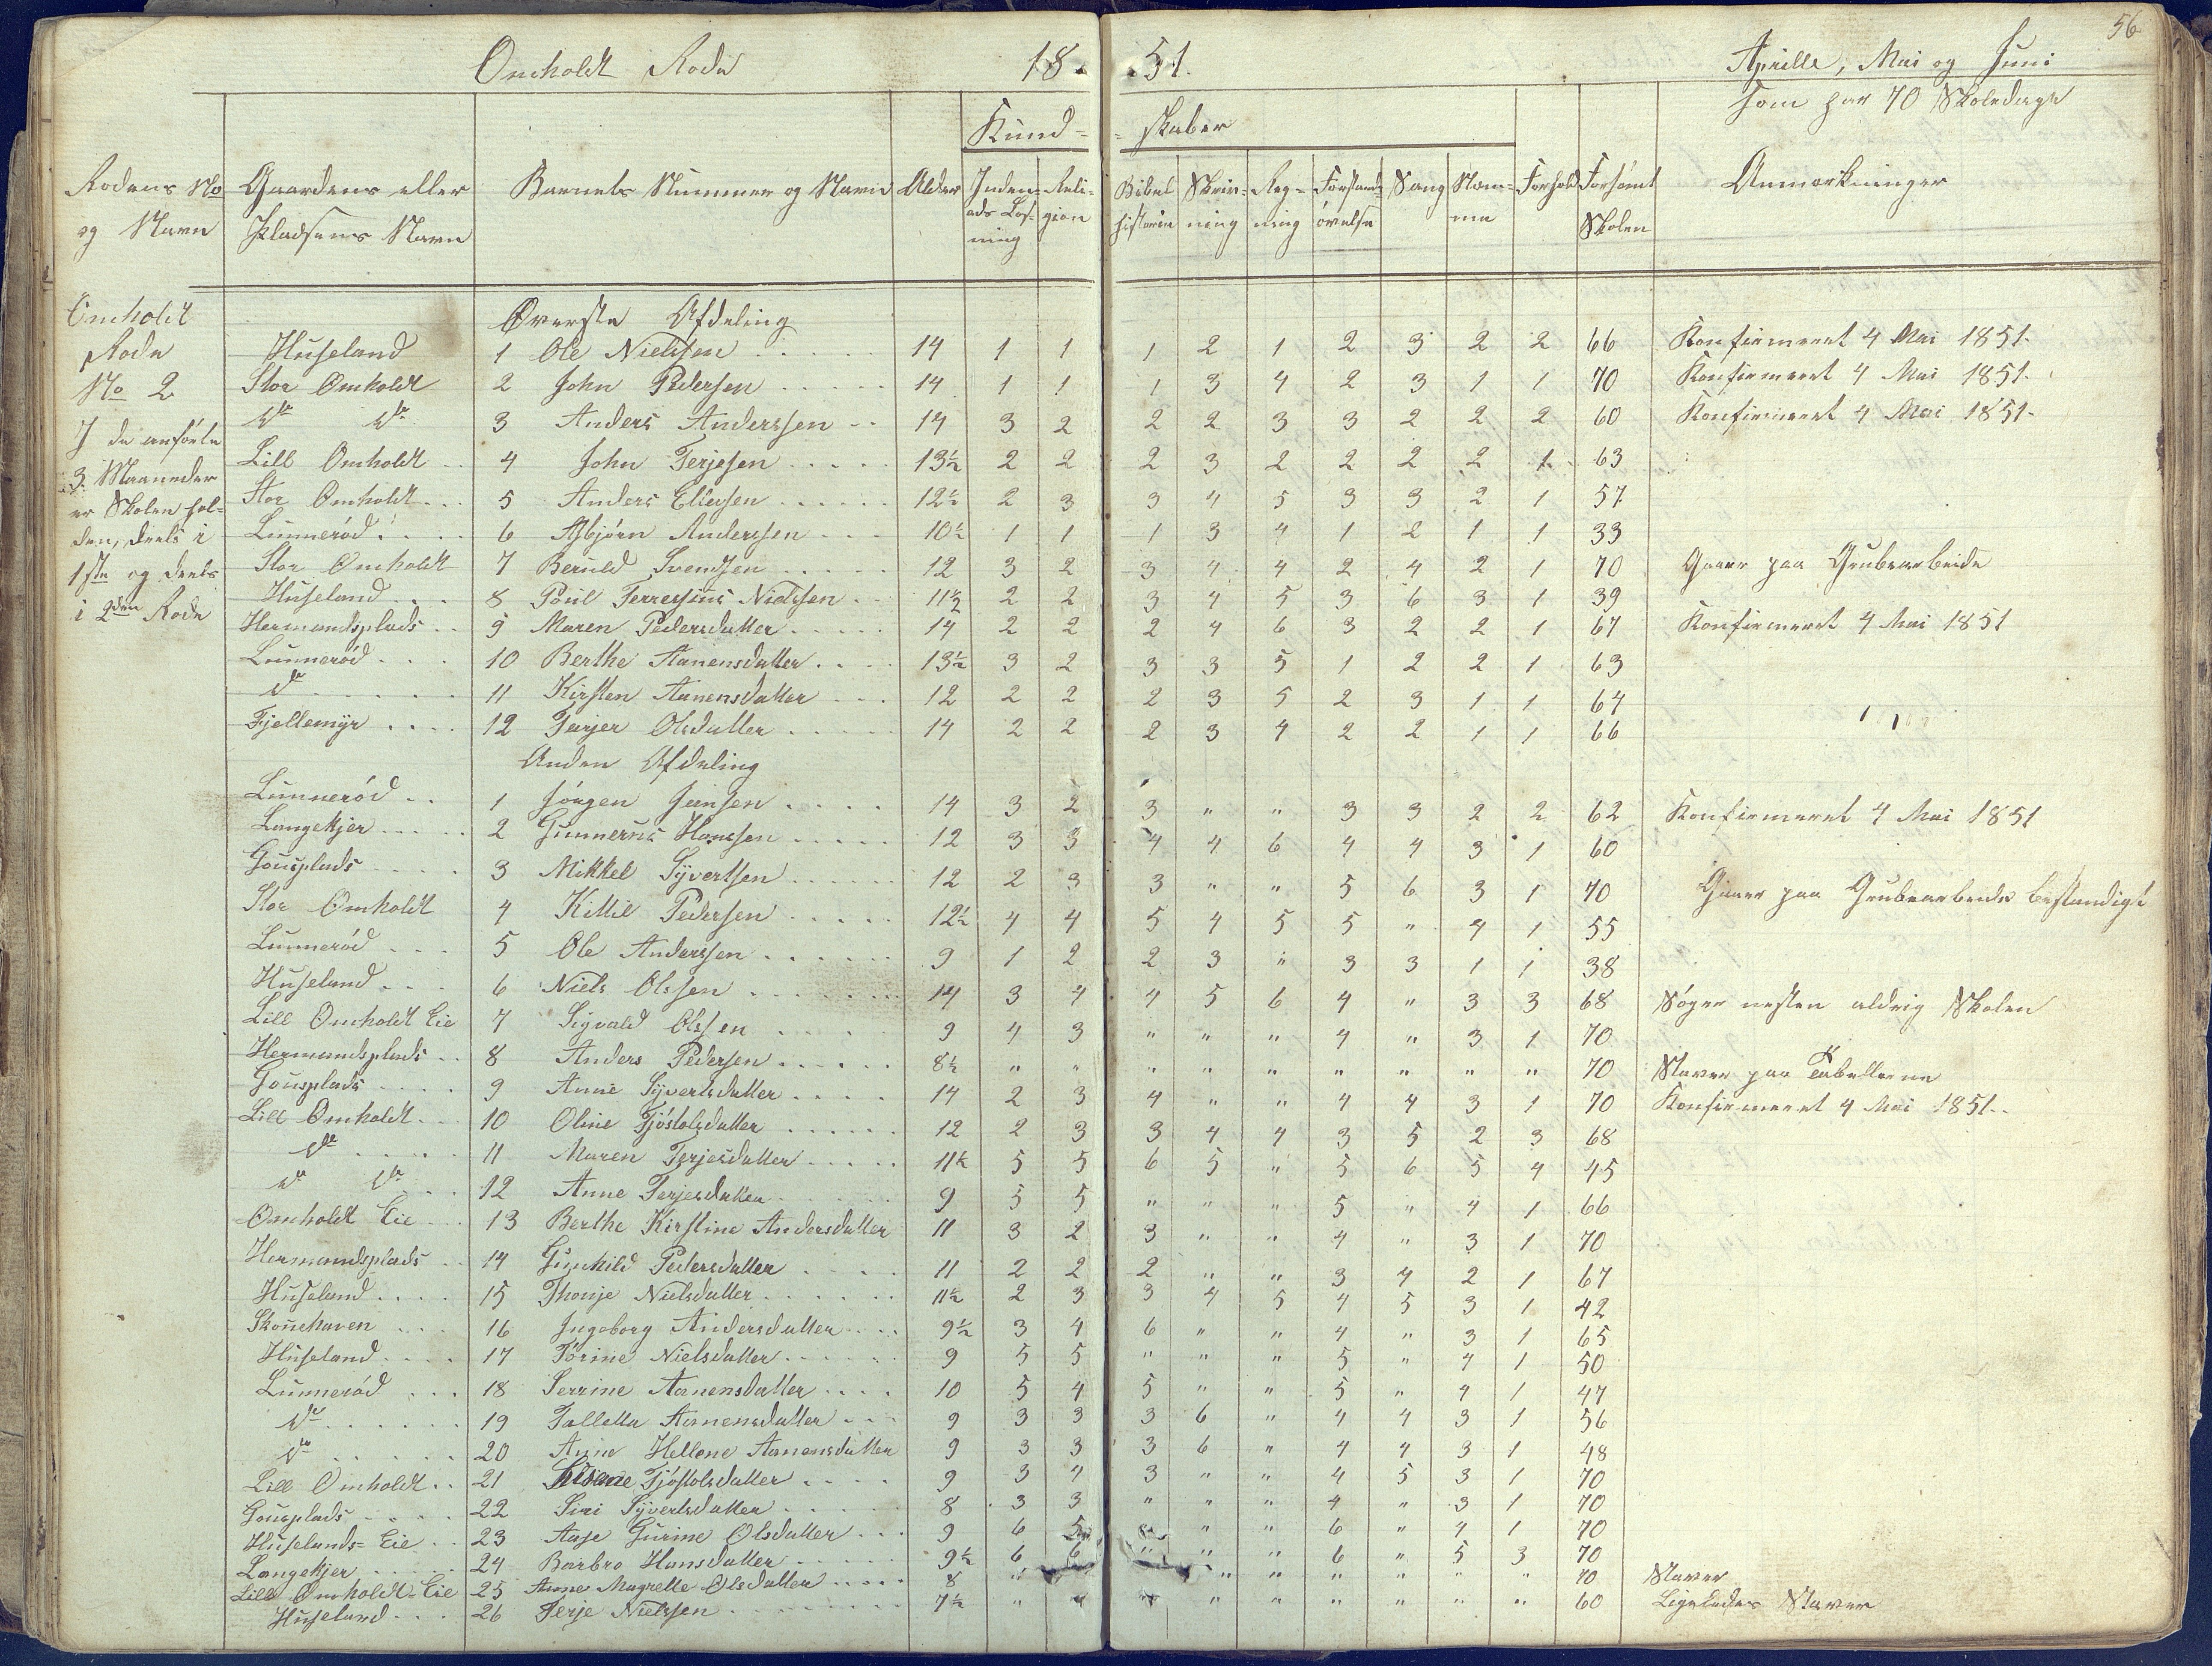 56
Omholdt Rode 18 51. Aprille, Mai og Juni
som har 70 Skoledage
Kund= =skaber
Rodens No og Navn | Gaardens eller Pladsens Navn | Barnets Nummer og Navn | Alder | Inden=ads Læs=ning | Reli=gion | Bibel historie | Skriv=ning | Reg=ning | Forstands øvelse | Sang | Nem=me | Forhold | Forsømt Skolen | Anmærkninger
Omholdt
Rode
No 2
I de anførte
3 Maaneder
er Skolen hol=
den, deels i
1ste og deels
i 2den Rode
Øverste Afdeling
Huseland 1 Ole Nielssen 14 1 1 1 2 1 2 3 2 2 66 Konfirmeret 4 Mai 1851.
Stor Omholdt 2 John Pedersen 14 1 1 1 3 4 2 3 1 1 70 Konfirmeret 4 Mai 1851.
do do 3 Anders Anderssen 14 3 2 2 2 3 3 2 2 2 60 Konfirmeret 4 Mai 1851.
Lill Omholdt 4 John Terjesen 13½ 2 2 2 3 2 2 2 2 1 63
Stor Omholdt 5 Anders Ellefsen 12½ 2 3 3 4 5 3 3 2 1 57
Lunnerød 6 Asbjørn Anderssen 10½ 1 1 1 3 4 1 2 1 1 33
Stor Omholdt 7 Beruld Svendsen 12 3 2 3 4 4 2 4 2 1 70 Gaaer paa Grubearbeide
Huseland 8 Poul Terresius Nielssen 11½ 2 2 3 4 5 3 6 3 1 39
Hermandsplads 9 Maren Pedersdatter 14 2 2 2 4 6 3 2 2 1 67 Konfirmeret 4 Mai 1851
Lunnerød 10 Berthe Aanensdatter 13½ 3 2 3 3 5 1 2 2 1 63
do 11 Kirsten Aanensdatter 12 2 2 2 3 5 2 3 1 1 64
Fjellemyr 12 Terjer Olsdatter 14 2 2 2 3 4 2 2 1 1 66
Anden Afdeling
Lunnerød 1 Jørgen Jensen 14 3 2 3 " " 3 3 2 2 62 Konfirmeret 4 Mai 1851
Langekjer 2 Gunnerus Hanssen 12 3 3 4 4 6 4 4 3 1 60
Gousplads 3 Mikkel Syvertsen 12 2 3 3 " " 5 6 3 1 70 Gaaer paa Grubearbeide bestandigt
Stor Omholdt 4 Kittil Pedersen 12½ 4 4 5 4 5 5 " 4 1 55
Lunnerød 5 Ole Anderssen 9 1 2 2 3 " 3 3 1 1 38
Huseland 6 Niels Olssen 14 3 4 4 5 6 4 " 3 3 68 Søger nesten aldrig Skolen
Lill Omholdt Eie 7 Sigvald Olssen 9 4 3 " " " 4 " 3 1 70
Hermandsplads 8 Anders Pedersen 8½ " " " " " " " " " 70 Staver paa Tabellerne
Gousplads 9 Anne Syvertsdatter 14 2 3 4 " " 4 4 3 1 70 Konfirmeret 4 Mai 1851.
Lill Omholdt 10 Oline Tjøstolsdatter 12 2 3 3 4 4 3 5 2 3 68
do 11 Maren Terjesdatter 11½ 5 5 6 5 " 5 6 5 4 45
do do 12 Anne Terjesdatter 9 5 5 " " " 5 " 4 1 66
Omholdt Eie 13 Berthe Kirstine Andersdatter 11 3 2 3 " " 4 " 3 1 70
Hermandsplads 14 Gunhild Pedersdatter 11 2 2 2 " " 3 4 2 1 67
Huseland 15 Thonje Nielsdatter 11½ 2 3 3 4 5 4 5 3 1 42
Skonehaven 16 Ingeborg Andersdatter 9½ 3 4 6 " " 4 " 3 1 65
Huseland 17 Torine Nielsdatter 9 5 5 " " " 5 " 4 1 50
Lunnerød 18 Serrine Aanensdatter 10 5 4 5 " " 5 " 4 1 47
do 19 Tallette Aanensdatter 9 3 3 3 6 " 4 4 3 1 56
do 20 Anne Hellene Aanensdatter 9 3 3 3 6 " 4 4 3 1 48
Lill Omholdt 21 Tjøstolsdatter 9 3 4 3 " " 4 5 3 1 70
Gousplads 22 Siri Syvertsdatter 8 3 3 " " " 4 " 3 1 70
Huselands=Eie 23 Aase Gurine Olsdatter 9 6 5 " " " 6 " 4 1 70
Langekjer 24 Barbro Hansdatter 9½ 6 6 " " " 6 " 5 3 70
Lill Omholdt=Eie 25 Anne Magrette Olsdatter 8 " " " " " " " " 70 Staver
Huseland 26 Terje Nielssen 7½ " " " " " " " " " 60 Ligeledes Staver